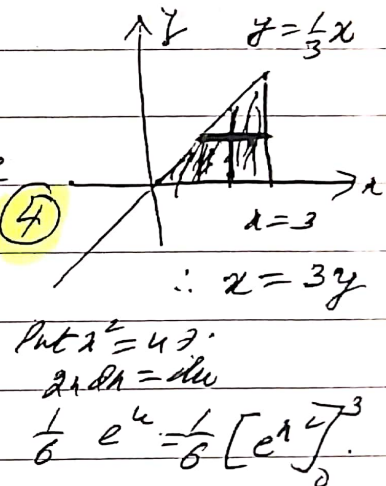 y
y = 1/3 x
x
④
x = 3
∴ x = 3y
Put x² = u ⇒
2x dx = du
1/6 e^u = 1/6 [e^{x²}]_0^3.